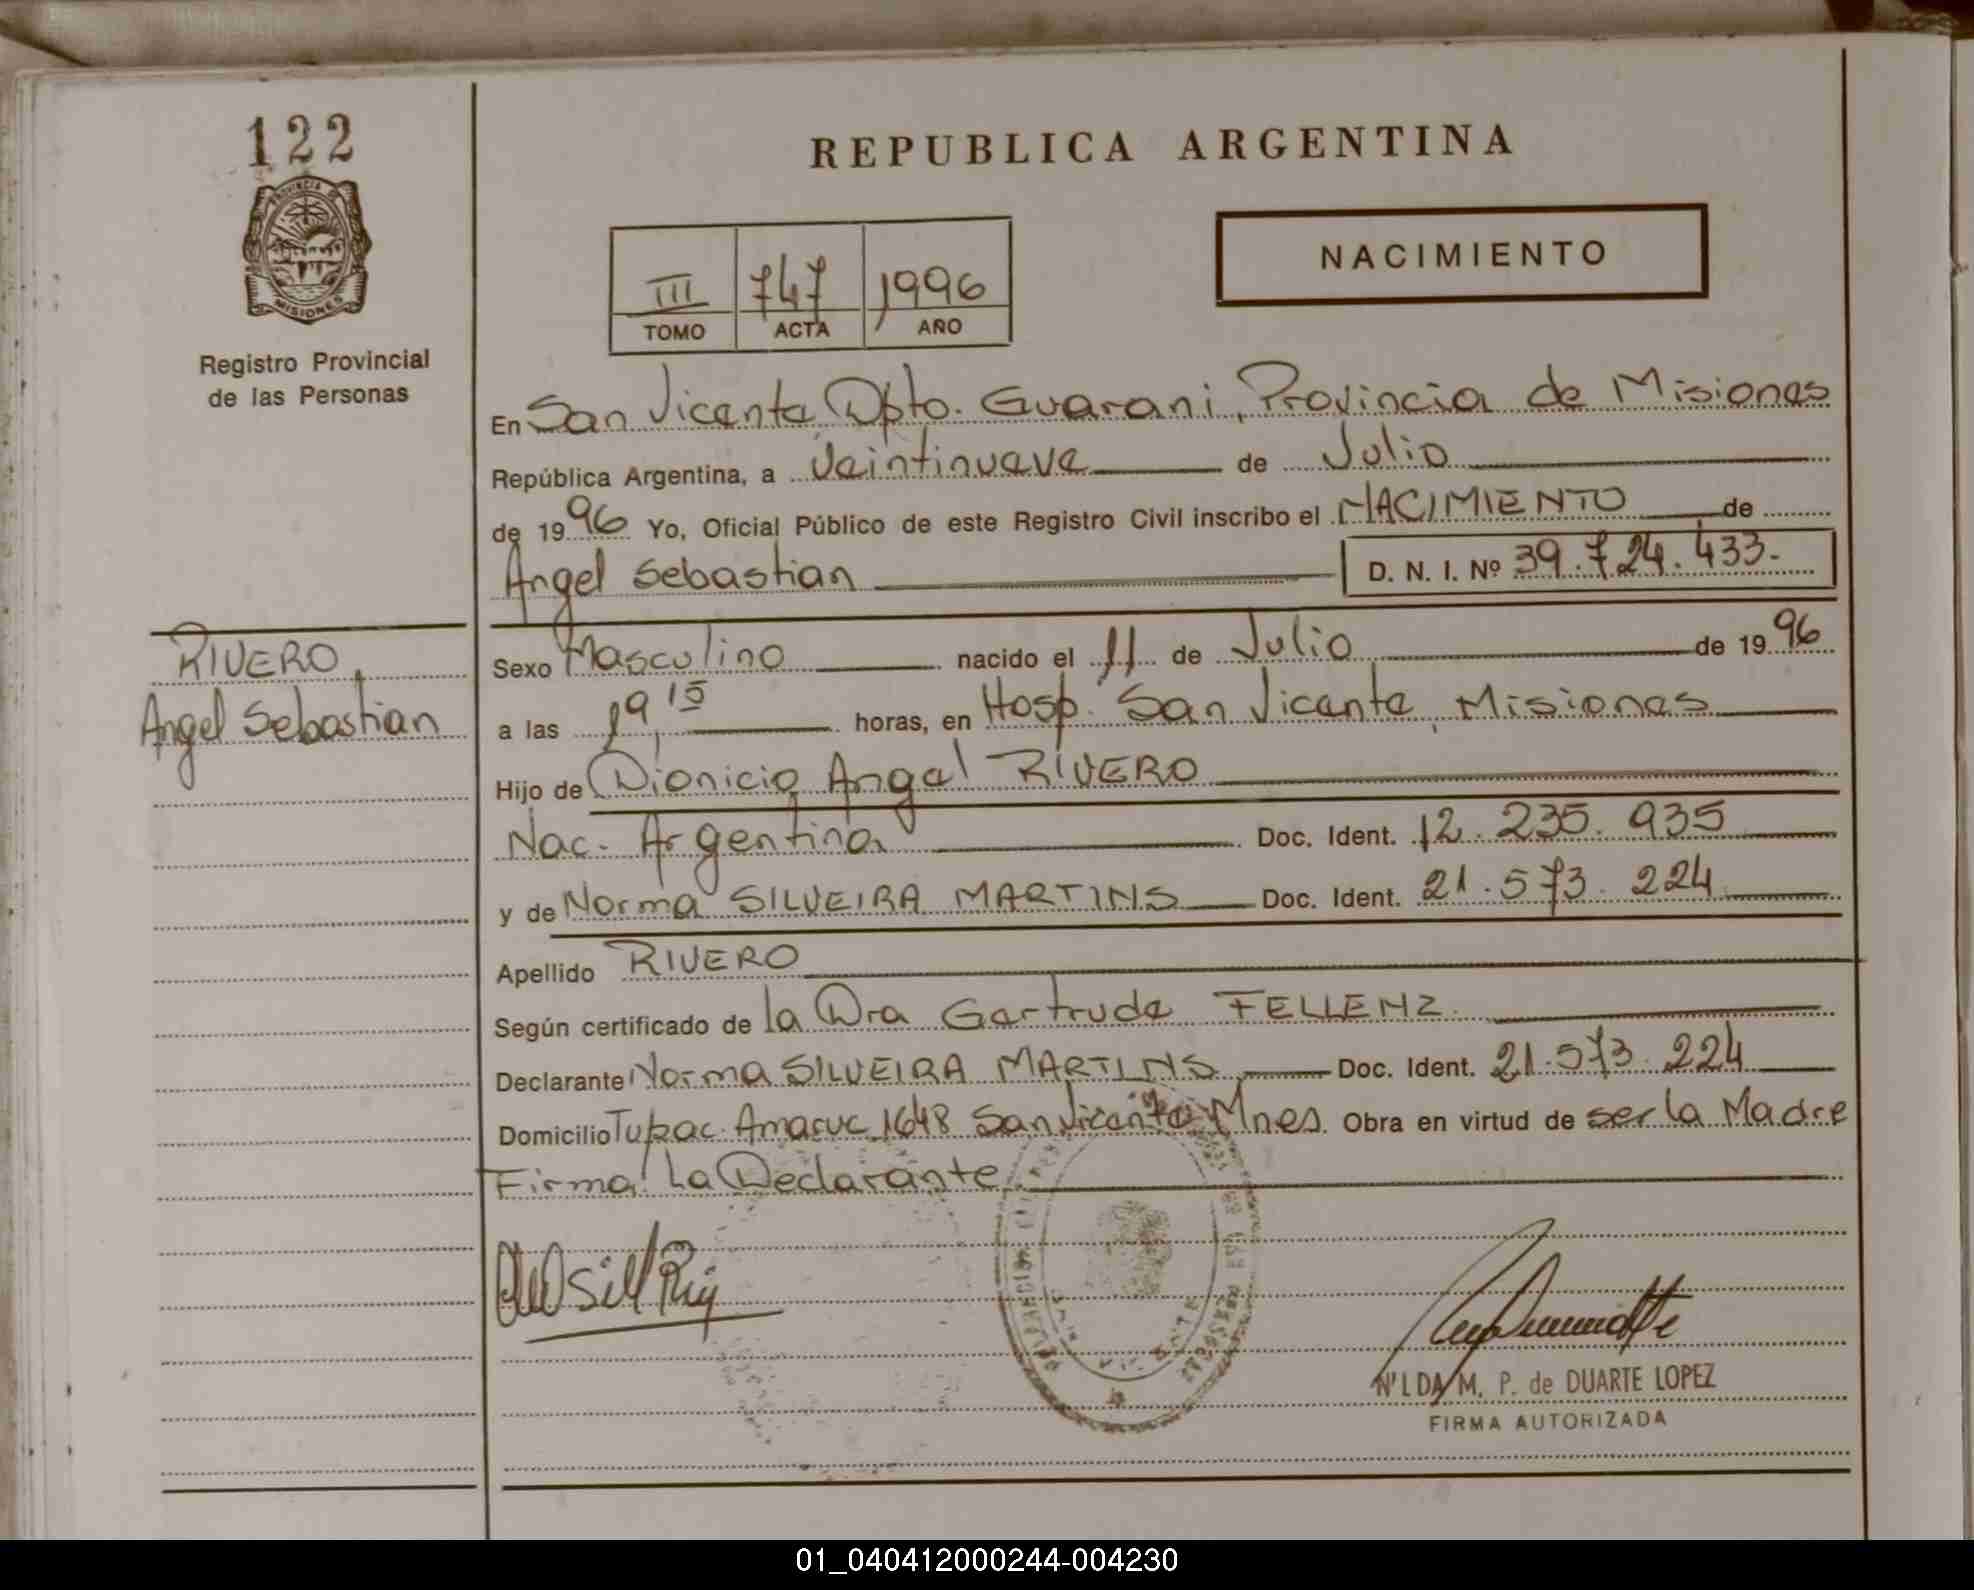 122
PROVINCIA DE
MISIONES
Registro Provincial
de las Personas
RIVERO,
Angel Sebastian
REPUBLICA ARGENTINA
NACIMIENTO
III 747 1996
TOMO ACTA AÑO
En San Vicente, Dpto. Guarani, Provincia de Misiones
República Argentina, a veintinueve de Julio
de 1996 Yo, Oficial Público de este Registro Civil inscribo el NACIMIENTO de
Angel Sebastian D. N. I. Nº 39.724.433.-
Sexo Masculino nacido el 11 de Julio de 1996
a las 19,15 horas, en Hosp. San Vicente, Misiones
Hijo de Dionicio Angel RIVERO
Nac. Argentina Doc. Ident. 12.235.935
y de Norma SILVEIRA MARTINS Doc. Ident. 21.573.224
Apellido RIVERO
Según certificado de la Dra Gertrude FELLENZ
Declarante Norma SILVEIRA MARTINS Doc. Ident. 21.573.224
Domicilio Tupac Amaruc 1648 San Vicente Mnes. Obra en virtud de ser la Madre
Firma: La Declarante
NILDA M. P. de DUARTE LOPEZ
FIRMA AUTORIZADA
01_040412000244-004230